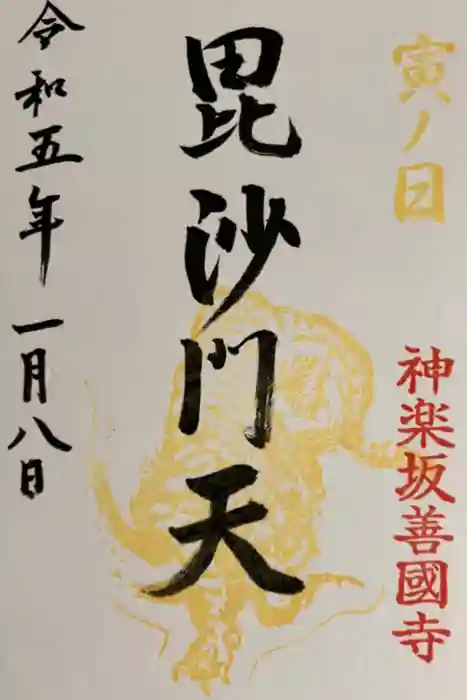 寅ノ日
神楽坂善國寺
毘沙門天
令和五年一月八日